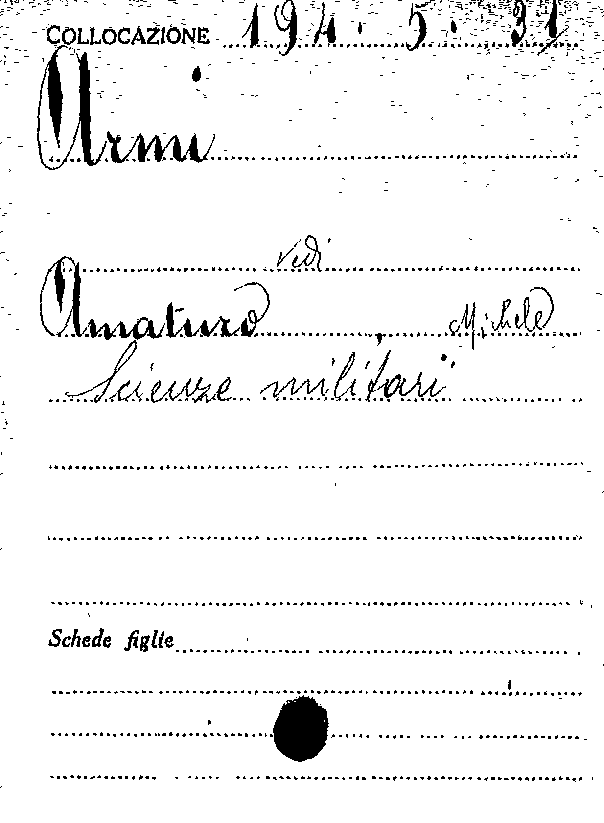 COLLOCAZIONE 194. 5. 31
Armi
vedi
Amaturo, Michele
Scienze militari
Schede figlie